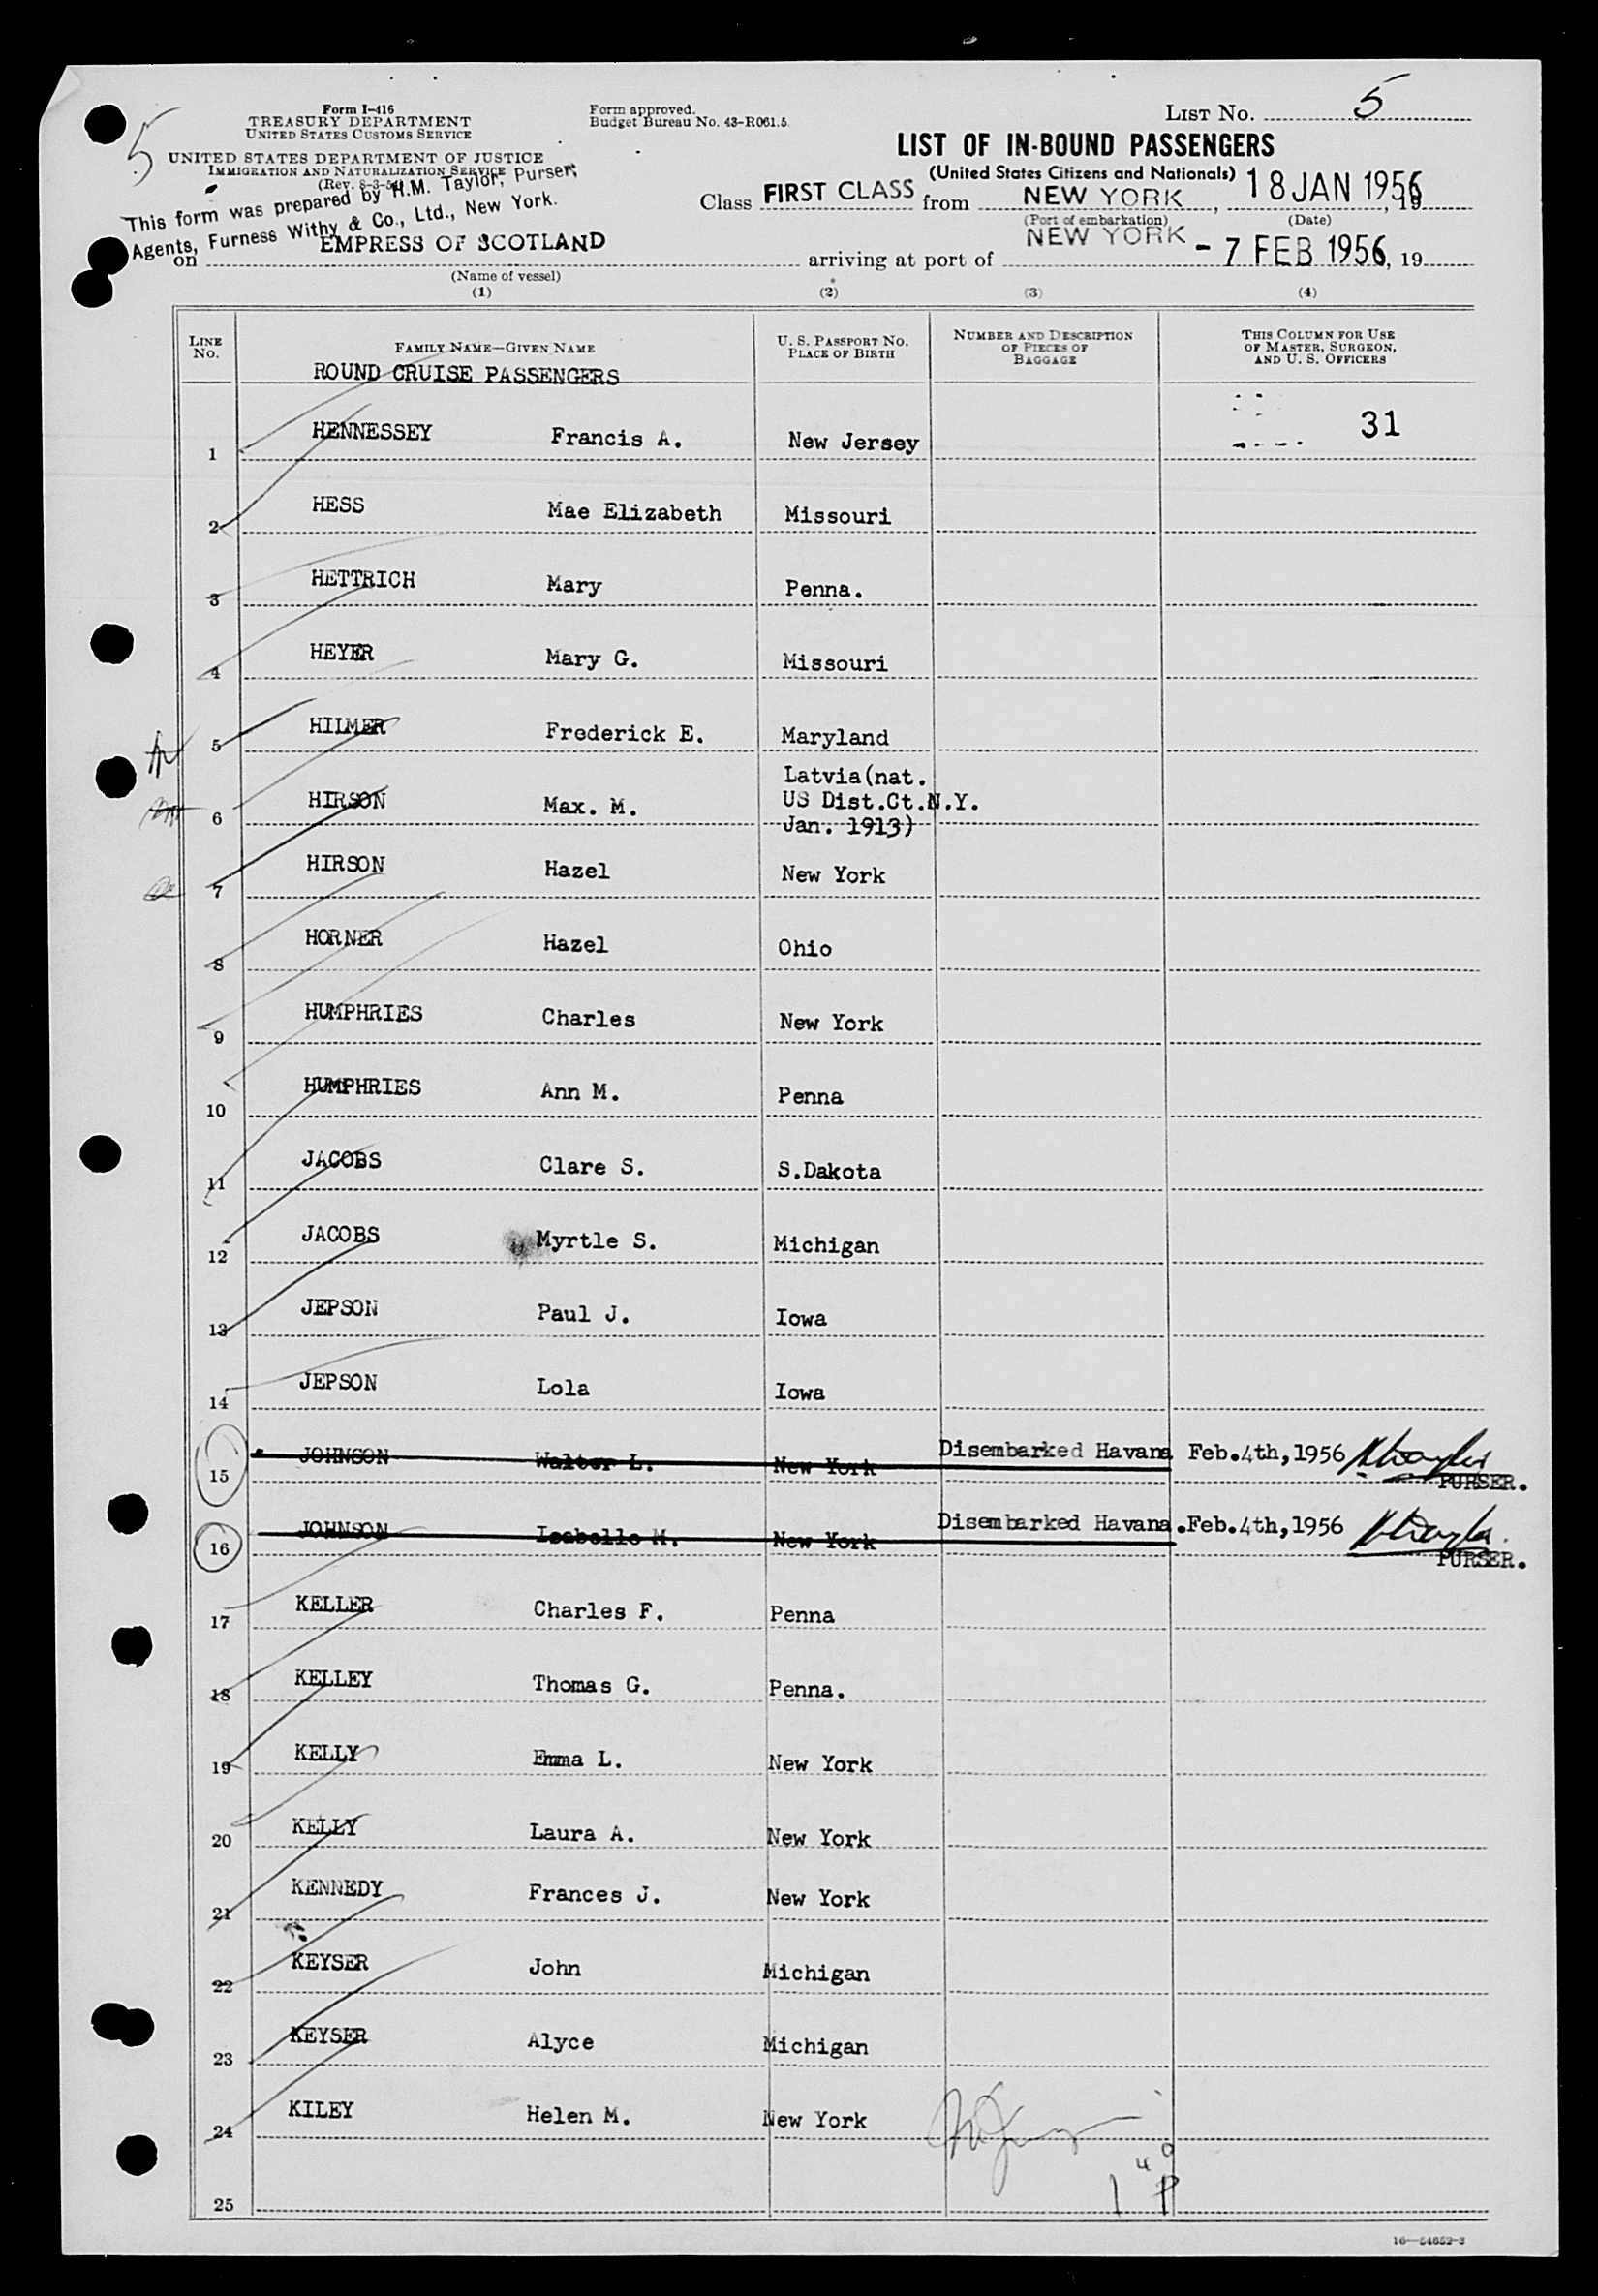 Form I-416
TREASURY DEPARTMENT
UNITED STATES CUSTOMS SERVICE
Form approved.
Budget Bureau No. 43-R061.5.
LIST NO. 5
5
UNITED STATES DEPARTMENT OF JUSTICE
IMMIGRATION AND NATURALIZATION SERVICE
LIST OF IN-BOUND PASSENGERS
(United States Citizens and Nationals)
This form was prepared by H.M. Taylor, Purser,
Agents, Furness Withy & Co., Ltd., New York.
Class FIRST CLASS from NEW YORK, 18 JAN 1956, 19
(Port of embarkation) (Date)
on EMPRESS OF SCOTLAND arriving at port of NEW YORK - 7 FEB 1956, 19
(Name of vessel)
(1) (2) (3) (4)
LINE NO. FAMILY NAME—GIVEN NAME U. S. PASSPORT NO. PLACE OF BIRTH NUMBER AND DESCRIPTION OF PIECES OF BAGGAGE THIS COLUMN FOR USE OF MASTER, SURGEON, AND U. S. OFFICERS
ROUND CRUISE PASSENGERS
1 HENNESSEY Francis A. New Jersey 31
2 HESS Mae Elizabeth Missouri
3 HETTRICH Mary Penna.
4 HEYER Mary G. Missouri
5 HILMER Frederick E. Maryland
6 HIRSON Max. M. Latvia(nat. US Dist.Ct.N.Y. Jan. 1913)
7 HIRSON Hazel New York
8 HORNER Hazel Ohio
9 HUMPHRIES Charles New York
10 HUMPHRIES Ann M. Penna
11 JACOBS Clare S. S.Dakota
12 JACOBS Myrtle S. Michigan
13 JEPSON Paul J. Iowa
14 JEPSON Lola Iowa
15 JOHNSON Walter L. New York Disembarked Havana Feb.4th,1956
PURSER.
16 JOHNSON Isabelle M. New York Disembarked Havana.Feb.4th,1956
PURSER.
17 KELLER Charles F. Penna
18 KELLEY Thomas G. Penna.
19 KELLY Emma L. New York
20 KELLY Laura A. New York
21 KENNEDY Frances J. New York
22 KEYSER John Michigan
23 KEYSER Alyce Michigan
24 KILEY Helen M. New York
25
16—54652-3